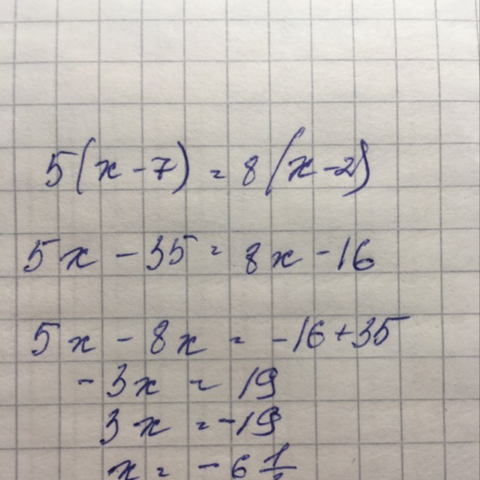 5(x-7) = 8(x-2)
5x - 35 = 8x - 16
5x - 8x = -16+35
-3x = 19
3x = -19
x = -6 1/